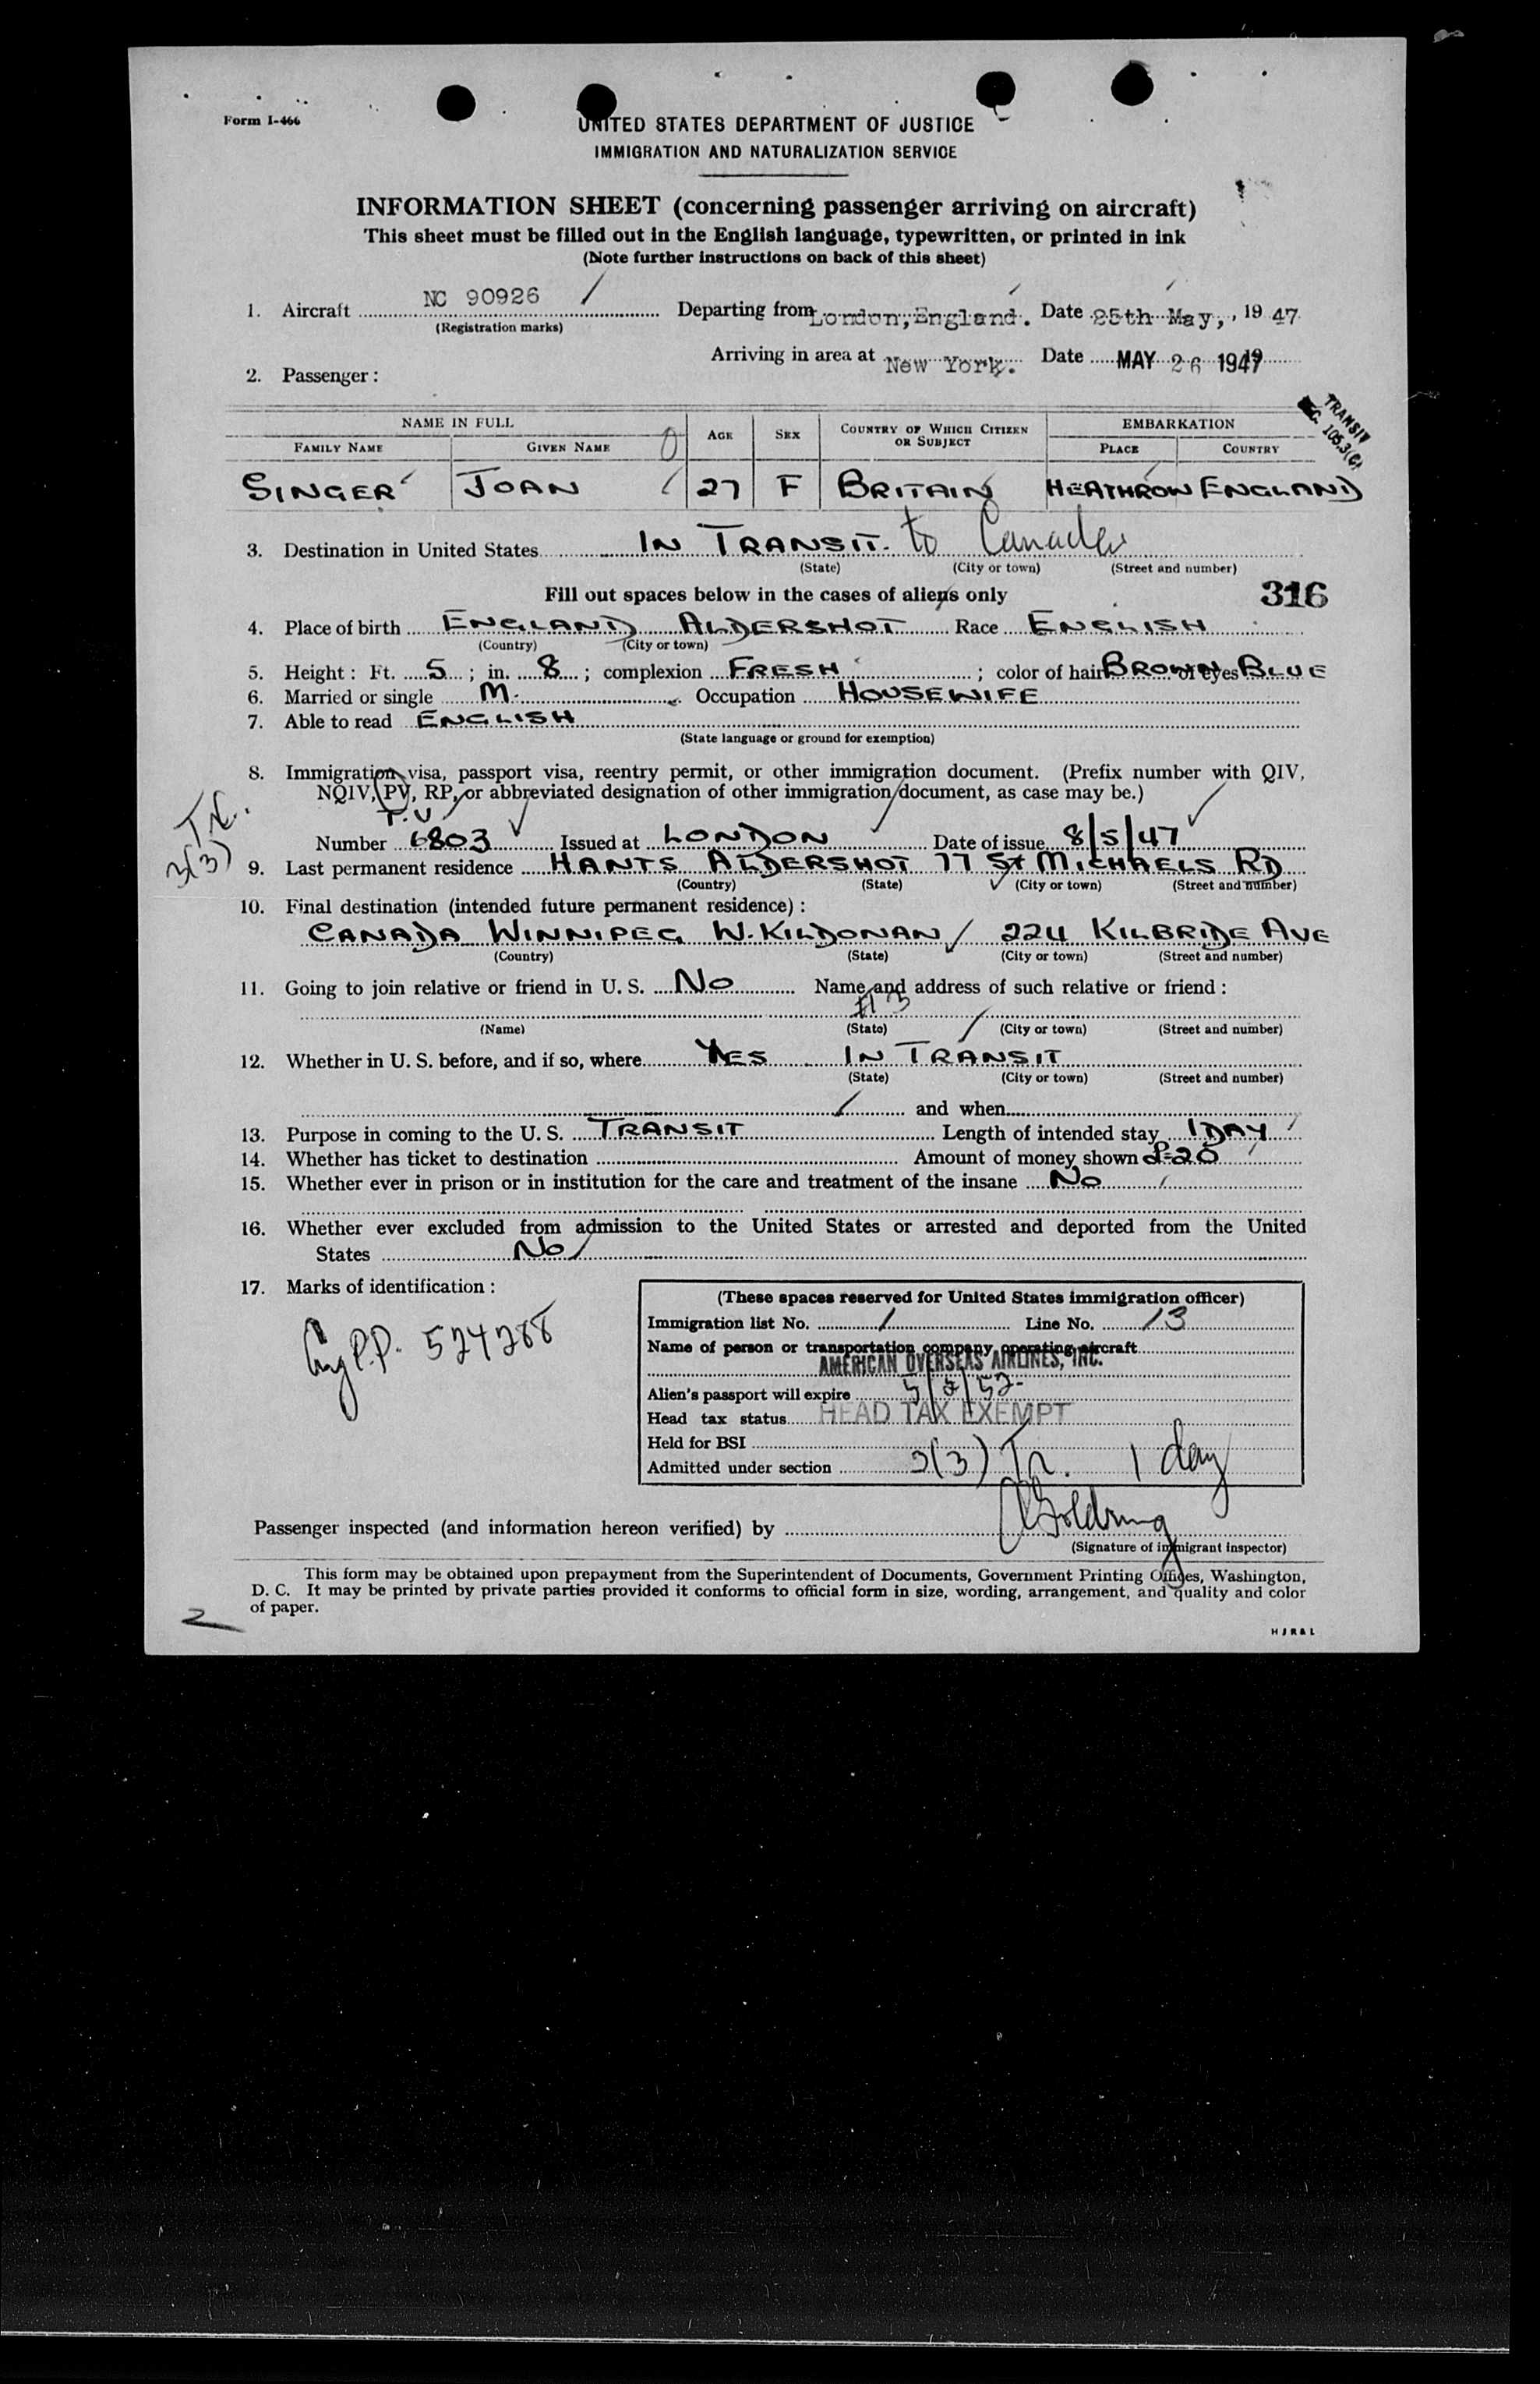 Form I-466
UNITED STATES DEPARTMENT OF JUSTICE
IMMIGRATION AND NATURALIZATION SERVICE
INFORMATION SHEET (concerning passenger arriving on aircraft)
This sheet must be filled out in the English language, typewritten, or printed in ink
(Note further instructions on back of this sheet)
1. Aircraft NC 90926 Departing from London, England. Date 25th May, , 19 47
(Registration marks)
Arriving in area at New York. Date MAY 26 1947
2. Passenger :
TRANSIT
105.3(C)
NAME IN FULL AGE SEX COUNTRY OF WHICH CITIZEN OR SUBJECT EMBARKATION
FAMILY NAME GIVEN NAME PLACE COUNTRY
SINGER JOAN 27 F BRITAIN HEATHROW ENGLAND
3. Destination in United States IN TRANSIT. to Canada
(State) (City or town) (Street and number)
Fill out spaces below in the cases of aliens only 316
4. Place of birth ENGLAND ALDERSHOT Race ENGLISH
(Country) (City or town)
5. Height : Ft. 5 ; in. 8 ; complexion FRESH ; color of hair BROWN of eyes BLUE
6. Married or single M. Occupation HOUSEWIFE
7. Able to read ENGLISH
(State language or ground for exemption)
8. Immigration visa, passport visa, reentry permit, or other immigration document. (Prefix number with QIV,
NQIV, PV, RP, or abbreviated designation of other immigration document, as case may be.)
T.V.
Tr.
3(3)
Number 6803 Issued at LONDON Date of issue 8/5/47
9. Last permanent residence HANTS ALDERSHOT 77 St MICHAELS RD
(Country) (State) (City or town) (Street and number)
10. Final destination (intended future permanent residence) :
CANADA WINNIPEG W. KILDONAN 224 KILBRIDE AVE
(Country) (State) (City or town) (Street and number)
11. Going to join relative or friend in U. S. NO Name and address of such relative or friend :
(Name) (State) (City or town) (Street and number)
12. Whether in U. S. before, and if so, where YES IN TRANSIT
(State) (City or town) (Street and number)
and when
13. Purpose in coming to the U. S. TRANSIT Length of intended stay 1 DAY
14. Whether has ticket to destination Amount of money shown £20
15. Whether ever in prison or in institution for the care and treatment of the insane NO
16. Whether ever excluded from admission to the United States or arrested and deported from the United
States NO
17. Marks of identification :
P.P. 524288
(These spaces reserved for United States immigration officer)
Immigration list No. 1 Line No. 13
Name of person or transportation company operating aircraft
AMERICAN OVERSEAS AIRLINES, INC.
Alien's passport will expire 5/2/52
Head tax status HEAD TAX EXEMPT
Held for BSI
Admitted under section 3(3) Tr. 1 day
Passenger inspected (and information hereon verified) by Goldring
(Signature of immigrant inspector)
This form may be obtained upon prepayment from the Superintendent of Documents, Government Printing Offices, Washington,
D. C. It may be printed by private parties provided it conforms to official form in size, wording, arrangement, and quality and color
of paper.
2
H J R & L